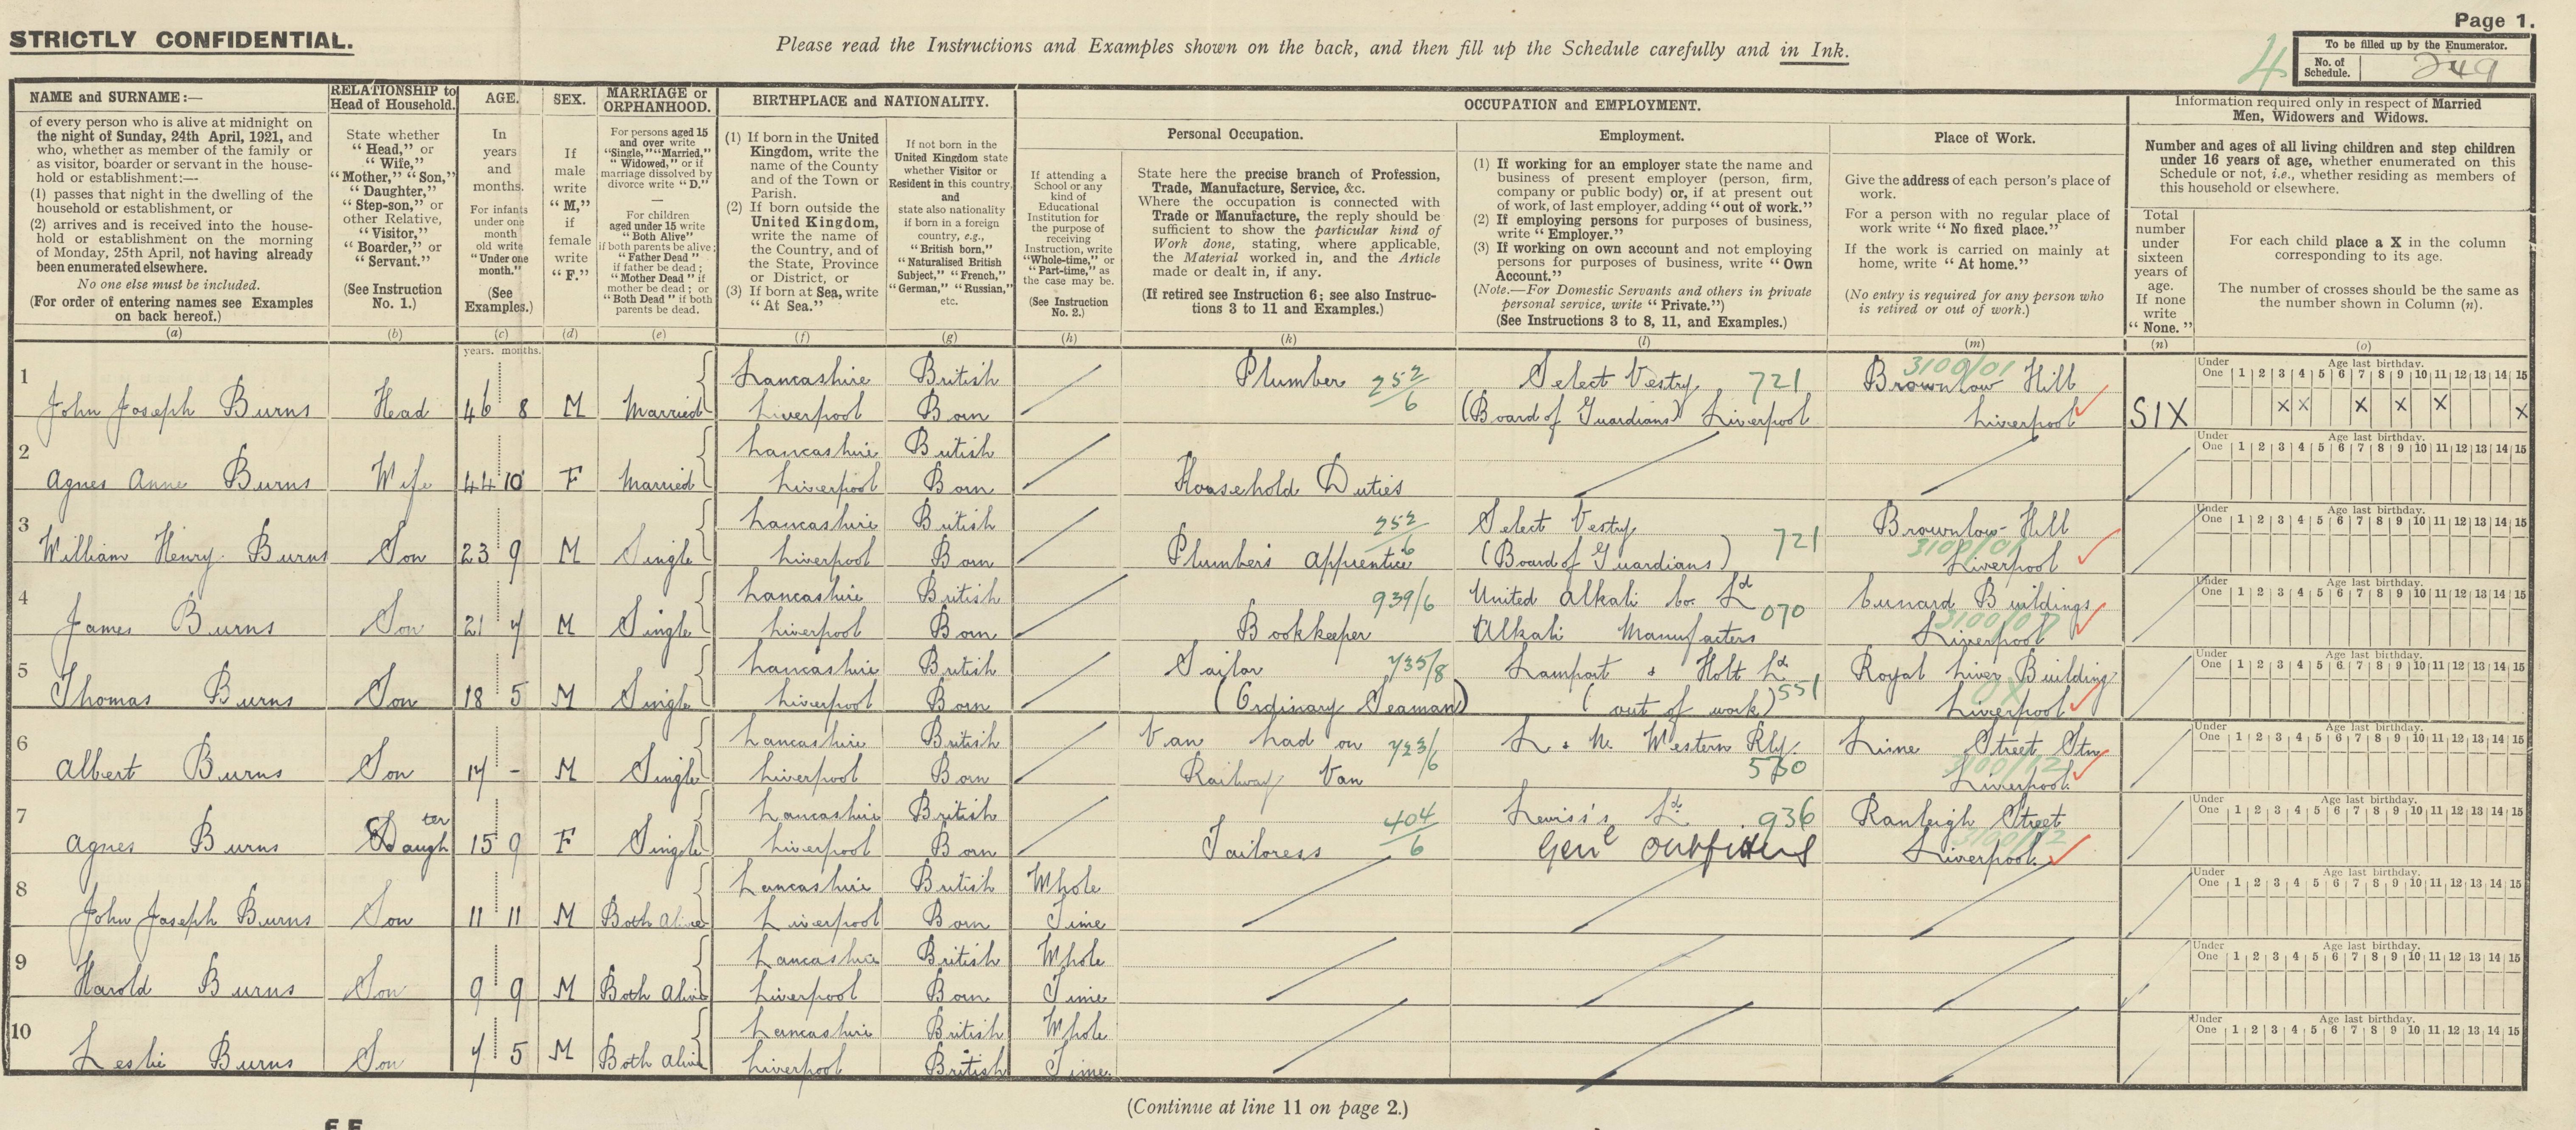 Page 1.
STRICTLY CONFIDENTIAL.
Please read the Instructions and Examples shown on the back, and then fill up the Schedule carefully and in Ink.
4
To be filled up by the Enumerator.
No. of Schedule. 249
NAME and SURNAME:—
of every person who is alive at midnight on
the night of Sunday, 24th April, 1921, and
who, whether as member of the family or
as visitor, boarder or servant in the house-
hold or establishment:—
(1) passes that night in the dwelling of the
household or establishment, or
(2) arrives and is received into the house-
hold or establishment on the morning
of Monday, 25th April, not having already
been enumerated elsewhere.
No one else must be included.
(For order of entering names see Examples
on back hereof.)
(a)
RELATIONSHIP to
Head of Household.
State whether
"Head," or
"Wife,"
"Mother," "Son,"
"Daughter,"
"Step-son," or
other Relative,
"Visitor,"
"Boarder," or
"Servant."
(See Instruction
No. 1.)
(b)
AGE.
In
years
and
months.
For infants
under one
month
old write
"Under one
month."
(See
Examples.)
(c)
SEX.
If
male
write
"M,"
if
female
write
"F."
(d)
MARRIAGE or
ORPHANHOOD.
For persons aged 15
and over write
"Single," "Married,"
"Widowed," or if
marriage dissolved by
divorce write "D."
—
For children
aged under 15 write
"Both Alive"
if both parents be alive;
"Father Dead"
if father be dead;
"Mother Dead" if
mother be dead; or
"Both Dead" if both
parents be dead.
(e)
BIRTHPLACE and NATIONALITY.
(1) If born in the United
Kingdom, write the
name of the County
and of the Town or
Parish.
(2) If born outside the
United Kingdom,
write the name of
the Country, and of
the State, Province
or District, or
(3) If born at Sea, write
"At Sea."
(f)
If not born in the
United Kingdom state
whether Visitor or
Resident in this country,
and
state also nationality
if born in a foreign
country, e.g.,
"British born,"
"Naturalised British
Subject," "French,"
"German," "Russian,"
etc.
(g)
OCCUPATION and EMPLOYMENT.
If attending a
School or any
kind of
Educational
Institution for
the purpose of
receiving
Instruction, write
"Whole-time," or
"Part-time," as
the case may be.
(See Instruction
No. 2.)
(h)
Personal Occupation.
State here the precise branch of Profession,
Trade, Manufacture, Service, &c.
Where the occupation is connected with
Trade or Manufacture, the reply should be
sufficient to show the particular kind of
Work done, stating, where applicable,
the Material worked in, and the Article
made or dealt in, if any.
(If retired see Instruction 6; see also Instruc-
tions 3 to 11 and Examples.)
(k)
Employment.
(1) If working for an employer state the name and
business of present employer (person, firm,
company or public body) or, if at present out
of work, of last employer, adding "out of work."
(2) If employing persons for purposes of business,
write "Employer."
(3) If working on own account and not employing
persons for purposes of business, write "Own
Account."
(Note.—For Domestic Servants and others in private
personal service, write "Private.")
(See Instructions 3 to 8, 11, and Examples.)
(l)
Place of Work.
Give the address of each person's place of
work.
For a person with no regular place of
work write "No fixed place."
If the work is carried on mainly at
home, write "At home."
(No entry is required for any person who
is retired or out of work.)
(m)
Information required only in respect of Married
Men, Widowers and Widows.
Number and ages of all living children and step children
under 16 years of age, whether enumerated on this
Schedule or not, i.e., whether residing as members of
this household or elsewhere.
Total
number
under
sixteen
years of
age.
If none
write
"None."
(n)
For each child place a X in the column
corresponding to its age.
The number of crosses should be the same as
the number shown in Column (n).
(o)
years. months.
Under One Age last birthday. 1 2 3 4 5 6 7 8 9 10 11 12 13 14 15
1 Lancashire British Plumber 252/6 Select Vestry 721 3100/01 Brownlow Hill
John Joseph Burns Head 46 8 M Married Liverpool Born (Board of Guardians) Liverpool Liverpool SIX X X X X X X
Under One Age last birthday. 1 2 3 4 5 6 7 8 9 10 11 12 13 14 15
2 Lancashire British
Agnes Anne Burns Wife 44 10 F Married Liverpool Born Household Duties
Under One Age last birthday. 1 2 3 4 5 6 7 8 9 10 11 12 13 14 15
3 Lancashire British 252/6 Select Vestry 721 Brownlow Hill
William Henry Burns Son 23 9 M Single Liverpool Born Plumbers Apprentice (Board of Guardians) 3100/01 Liverpool
Under One Age last birthday. 1 2 3 4 5 6 7 8 9 10 11 12 13 14 15
4 Lancashire British 939/6 United Alkali Co. Ld 070 Cunard Buildings
James Burns Son 21 7 M Single Liverpool Born Bookkeeper Alkali Manufacters Liverpool
Under One Age last birthday. 1 2 3 4 5 6 7 8 9 10 11 12 13 14 15
5 Lancashire British Sailor 735/8 Lamport & Holt Ld Royal Liver Building
Thomas Burns Son 18 5 M Single Liverpool Born (Ordinary Seaman) (out of work) 551 Liverpool
Under One Age last birthday. 1 2 3 4 5 6 7 8 9 10 11 12 13 14 15
6 Lancashire British Van had on 723/6 L. & N. Western Rly. Lime Street Stn
Albert Burns Son 17 - M Single Liverpool Born Railway Van 530 3100/12 Liverpool
Under One Age last birthday. 1 2 3 4 5 6 7 8 9 10 11 12 13 14 15
7 Lancashire British 404/6 Lewis's Ld. 936 Ranleigh Street
Agnes Burns Daughter 15 9 F Single Liverpool Born Tailoress Genl Outfitters Liverpool
Under One Age last birthday. 1 2 3 4 5 6 7 8 9 10 11 12 13 14 15
8 Lancashire British Whole
John Joseph Burns Son 11 11 M Both Alive Liverpool Born Time
Under One Age last birthday. 1 2 3 4 5 6 7 8 9 10 11 12 13 14 15
9 Lancashire British Whole
Harold Burns Son 9 9 M Both Alive Liverpool Born Time
Under One Age last birthday. 1 2 3 4 5 6 7 8 9 10 11 12 13 14 15
10 Lancashire British Whole
Leslie Burns Son 7 5 M Both Alive Liverpool British Time
(Continue at line 11 on page 2.)